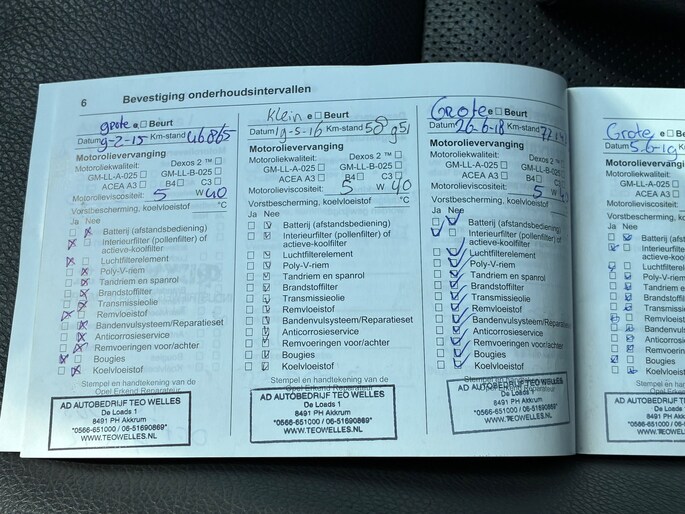 6 Bevestiging onderhoudsintervallen
grote e Beurt
Datum 9-2-15 Km-stand 46865
Motorolievervanging
Motoroliekwaliteit: Dexos 2 ™
GM-LL-A-025 GM-LL-B-025
ACEA A3 B4 C3
Motorolieviscositeit: 5 W 40
Vorstbescherming, koelvloeistof °C
Ja Nee
Batterij (afstandsbediening)
Interieurfilter (pollenfilter) of
actieve-koolfilter
Luchtfilterelement
Poly-V-riem
Tandriem en spanrol
Brandstoffilter
Transmissieolie
Remvloeistof
Bandenvulsysteem/Reparatieset
Anticorrosieservice
Remvoeringen voor/achter
Bougies
Koelvloeistof
Stempel en handtekening van de
Opel Erkend Reparateur
AD AUTOBEDRIJF TEO WELLES
De Loads 1
8491 PH Akkrum
"0566-651000 / 06-51690869"
WWW.TEOWELLES.NL
Klein e Beurt
Datum 19-5-16 Km-stand 58951
Motorolievervanging
Motoroliekwaliteit: Dexos 2 ™
GM-LL-A-025 GM-LL-B-025
ACEA A3 B4 C3
Motorolieviscositeit: 5 W 40
Vorstbescherming, koelvloeistof °C
Ja Nee
Batterij (afstandsbediening)
Interieurfilter (pollenfilter) of
actieve-koolfilter
Luchtfilterelement
Poly-V-riem
Tandriem en spanrol
Brandstoffilter
Transmissieolie
Remvloeistof
Bandenvulsysteem/Reparatieset
Anticorrosieservice
Remvoeringen voor/achter
Bougies
Koelvloeistof
Stempel en handtekening van de
Opel Erkend Reparateur
AD AUTOBEDRIJF TEO WELLES
De Loads 1
8491 PH Akkrum
"0566-651000 / 06-51690869"
WWW.TEOWELLES.NL
Grote e Beurt
Datum 26-6-18 Km-stand
Motorolievervanging
Motoroliekwaliteit: Dexos 2 ™
GM-LL-A-025 GM-LL-B-025
ACEA A3 B4 C3
Motorolieviscositeit: 5 W
Vorstbescherming, koelvloeistof °C
Ja Nee
Batterij (afstandsbediening)
Interieurfilter (pollenfilter) of
actieve-koolfilter
Luchtfilterelement
Poly-V-riem
Tandriem en spanrol
Brandstoffilter
Transmissieolie
Remvloeistof
Bandenvulsysteem/Reparatieset
Anticorrosieservice
Remvoeringen voor/achter
Bougies
Koelvloeistof
Stempel en handtekening van de
AD AUTOBEDRIJF TEO WELLES
De Loads 1
8491 PH Akkrum
"0566-651000 / 06-51690869"
WWW.TEOWELLES.NL
Grote e
Datum 5-6-19 Km
Motorolievervanging
Motoroliekwaliteit:
GM-LL-A-025
ACEA A3
Motorolieviscositeit:
Vorstbescherming, koel
Ja Nee
Batterij (afstands
Interieurfilter (po
actieve-koolfilter
Luchtfilterelem
Poly-V-riem
Tandriem en
Brandstoffilt
Transmissie
Remvloeist
Bandenvul
Anticorros
Remvoerin
Bougies
Koelvloeist
Stempel en h
Opel Erk
AD AUTOBEDRIJF
De L
8491 PH
"0566-651000
WWW.TEOW